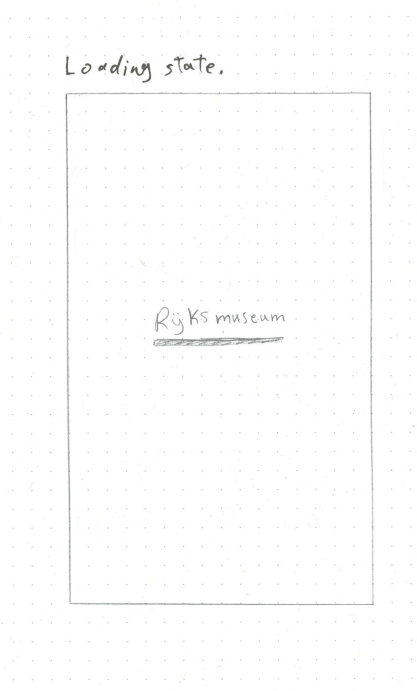 Loading state.
Rijksmuseum